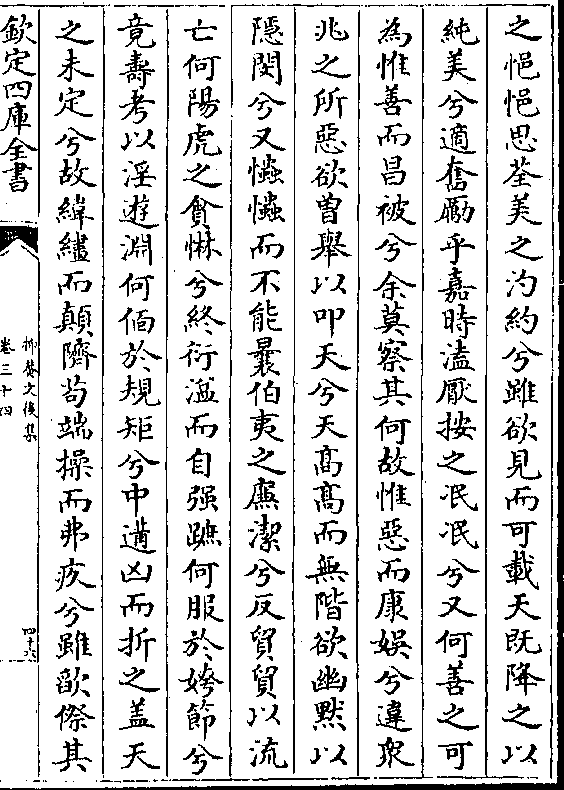 之悒悒思荃美之汋約兮雖欲見而可載天既降之以
純美兮適奮勵乎嘉時溘厭按之冺冺兮又何善之可
為惟善而昌被兮余莫察其何故惟惡而康娛兮違衆
兆之所惡欲曾舉以叩天兮天髙髙而無階欲幽默以
隠閔兮又怞怞而不能曩伯夷之亷潔兮反貿貿以流
亡何陽虎之貪惏兮終衍溢而自强蹠何服於姱節兮
竟壽考以淫遊淵何偭於規矩兮中遘凶而折之盖天
之未定兮故緯繣而顛隮苟端操而弗疚兮雖歆傺其
欽定四庫全書
柳待制文集
卷三十四